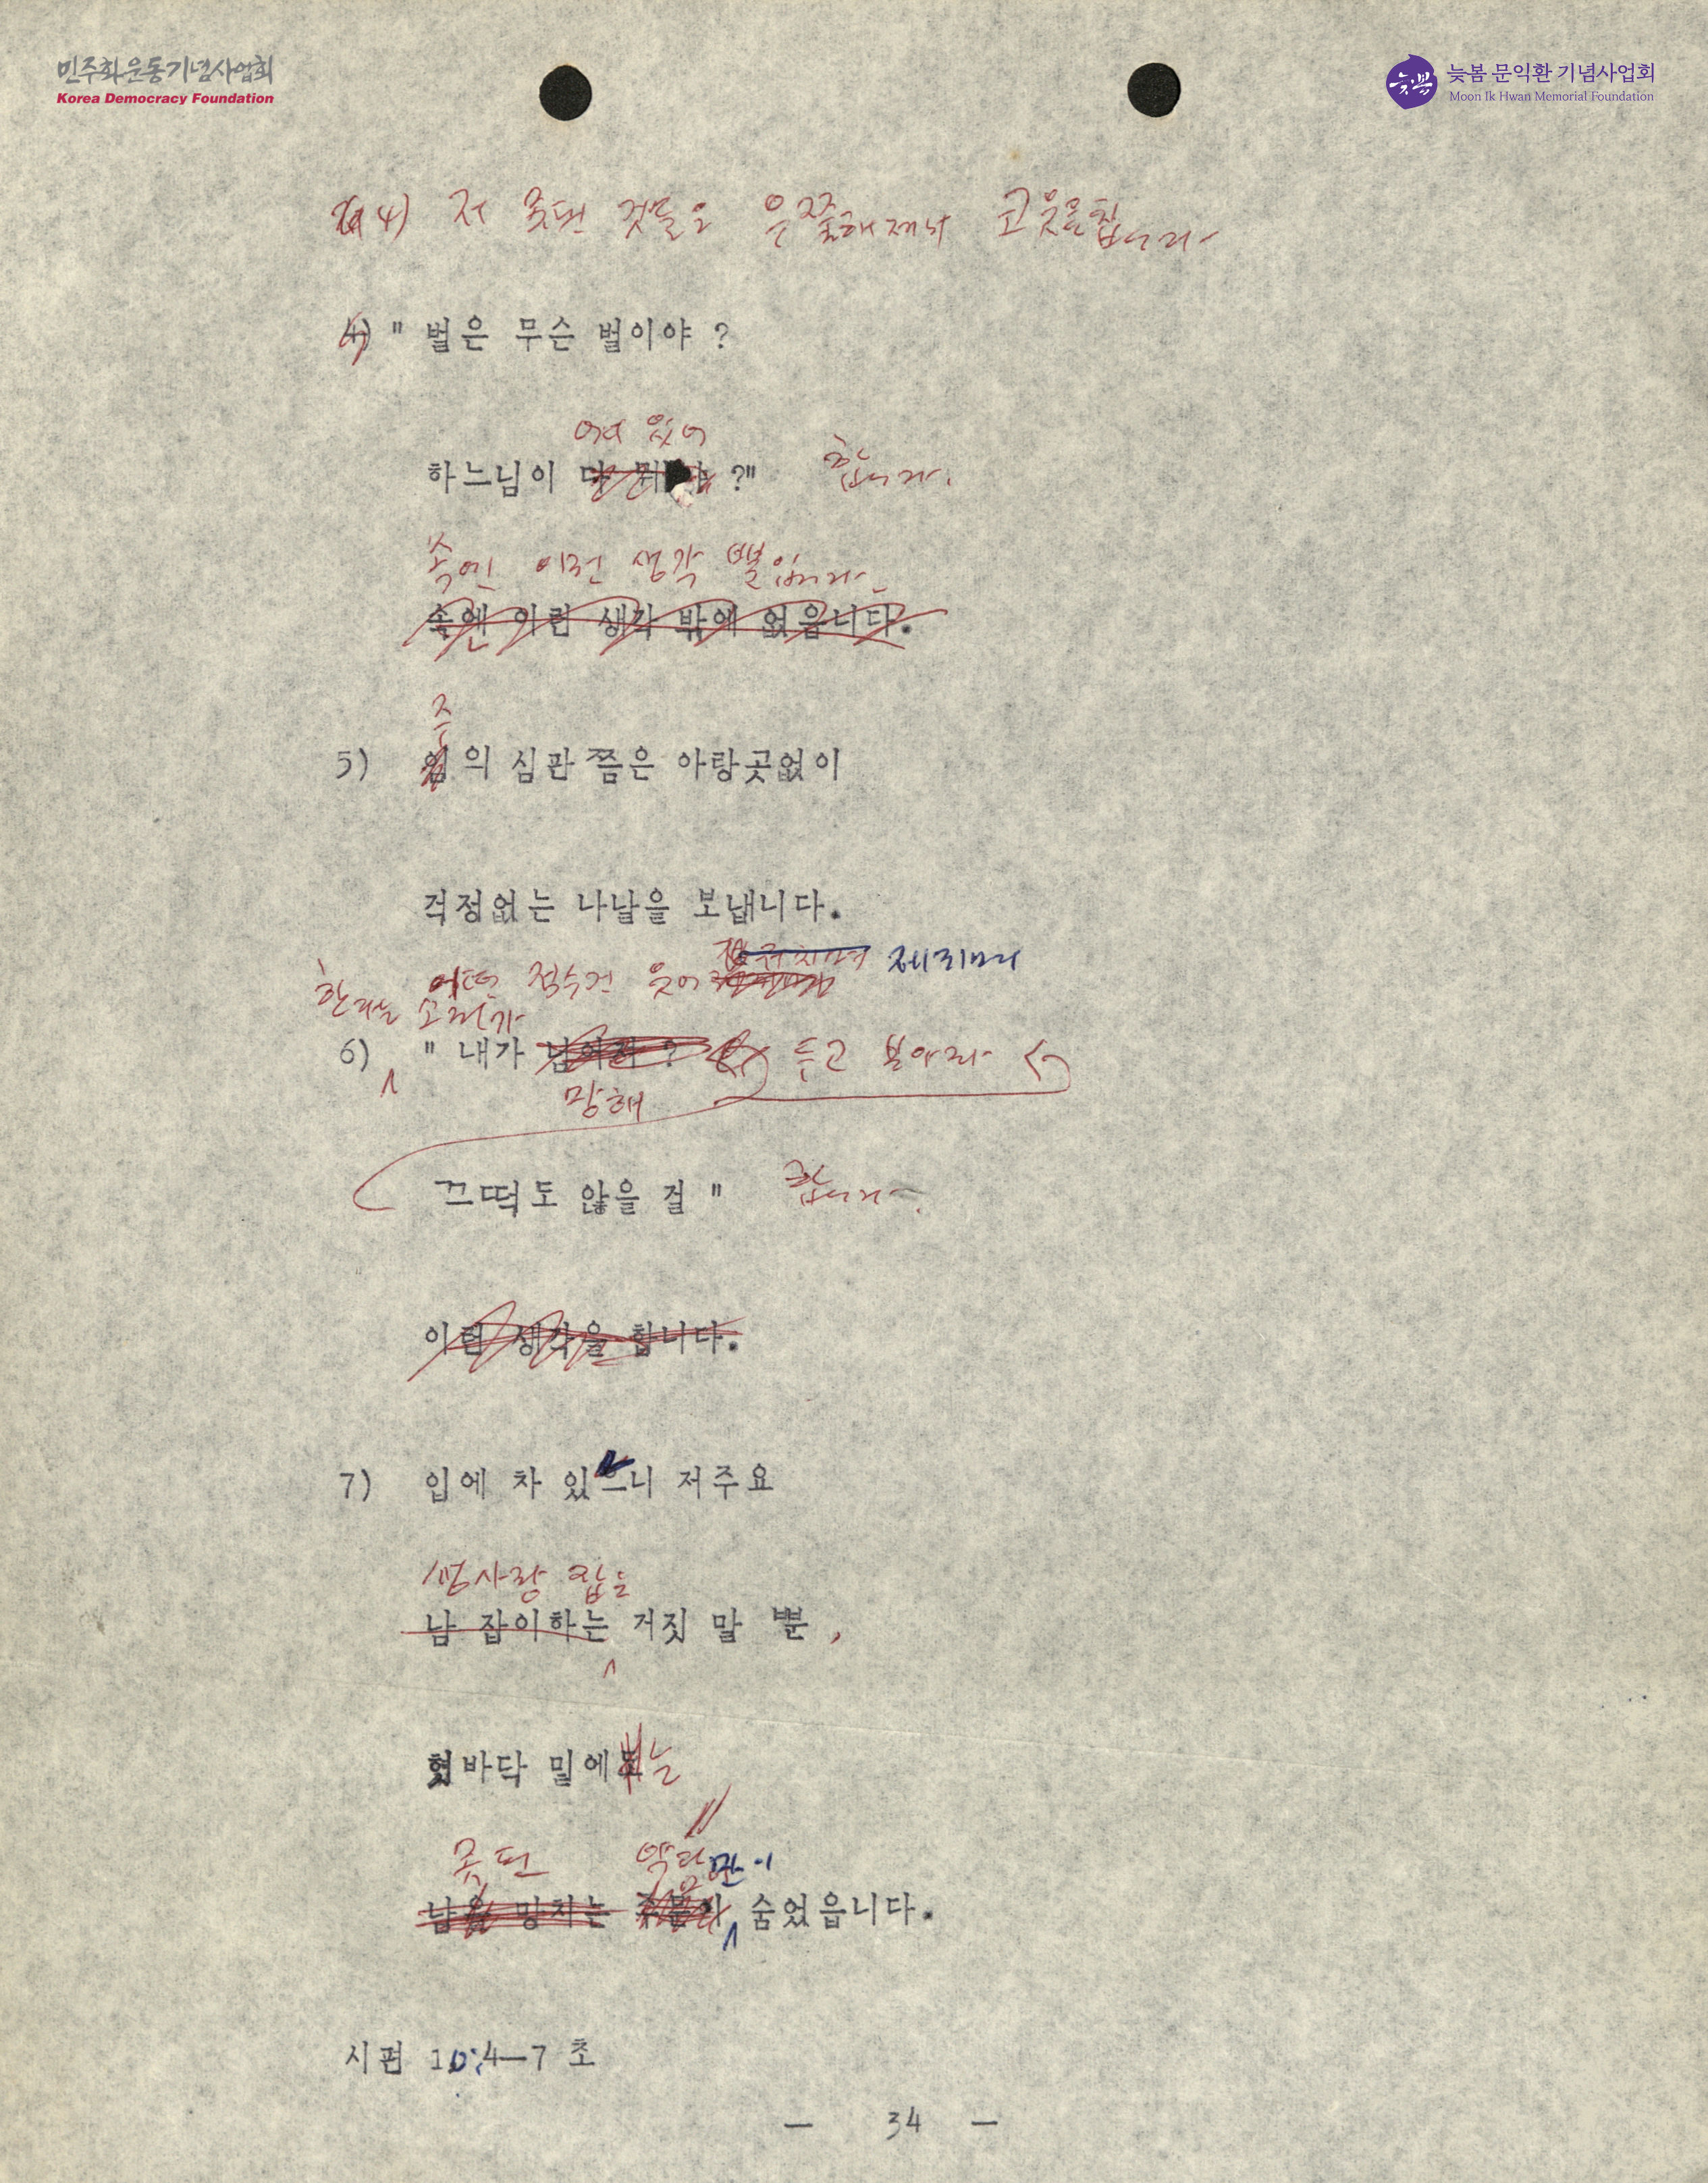 민주화운동기념사업회
Korea Democracy Foundation
늦봄
늦봄 문익환 기념사업회
Moon Ik Hwan Memorial Foundation
4) 저 못된 것들은 우쭐해져서 코웃음칩니다.
4) " 벌은 무슨 벌이야 ?
어디 있어
하느님이 다 뭐 ?" 합니다.
속엔 이런 생각 뿐입니다.
속엔 이런 생각 밖에 없읍니다.
주
5) 임의 심판쯤은 아랑곳없이
걱정없는 나날을 보냅니다.
제끼며
한다는 소리가
6) " 내가 넘어져 ? 두고 보아라
망해
끄떡도 않을 걸 " 합니다.
이런 생각을 합니다.
7) 입에 차 있으니 저주요
생사람 잡는
남 잡이하는 거짓 말 뿐,
혓바닥 밑에도 는
못된 악담만이
남을 망치는 주문이 숨었읍니다.
시편 10:4-7 초
- 34 -